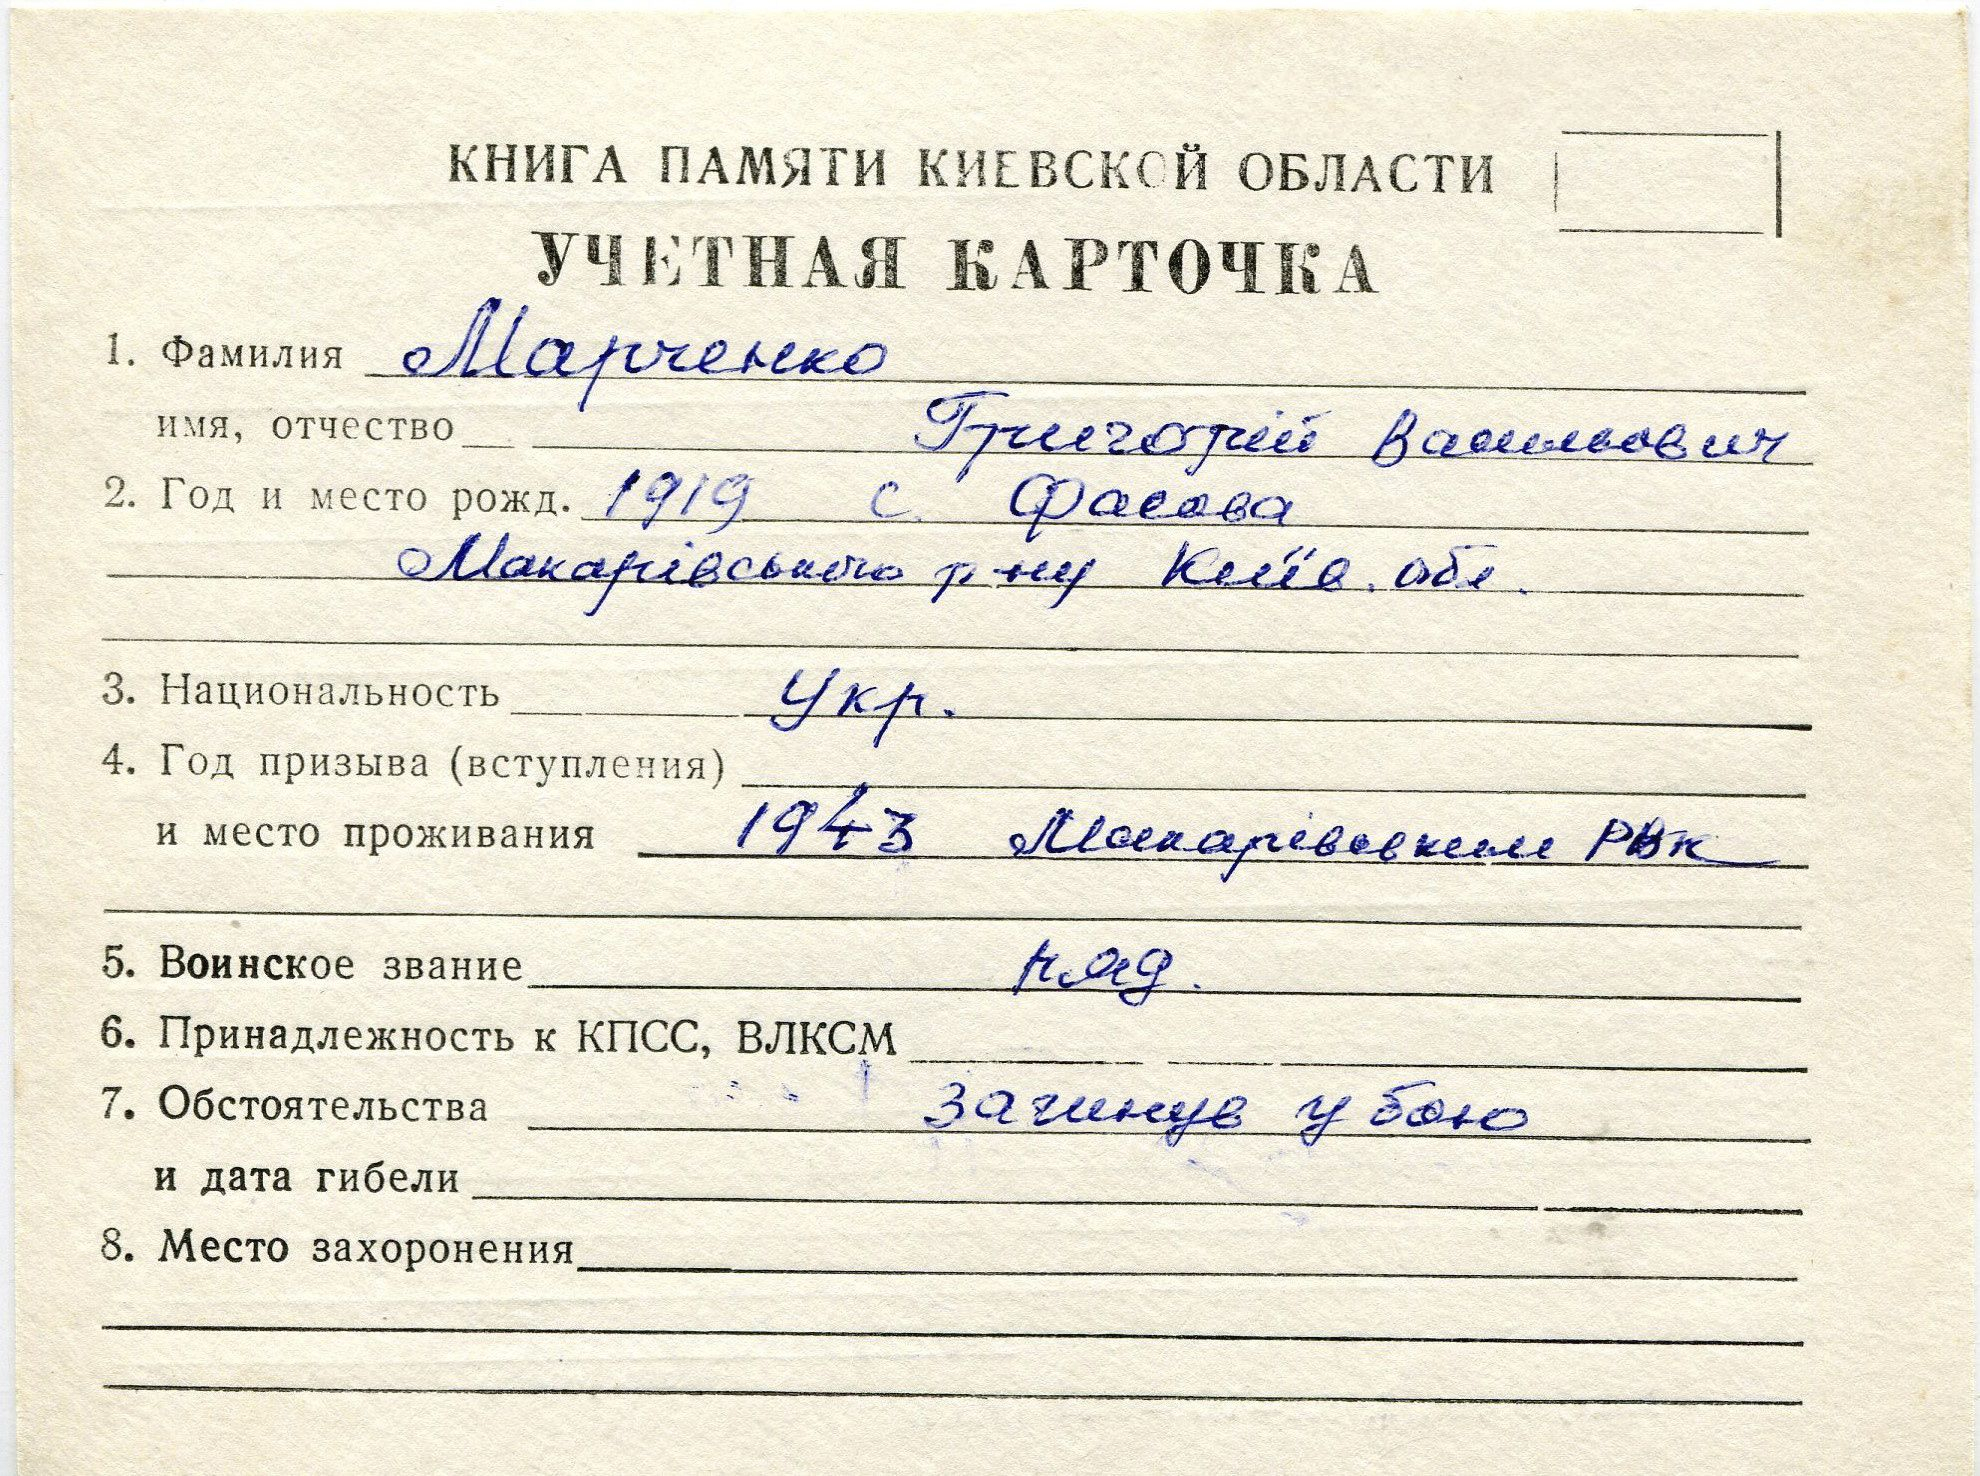 КНИГА ПАМЯТИ КИЕВСКОЙ ОБЛАСТИ
УЧЕТНАЯ КАРТОЧКА
1. Фамилия Марченко
имя, отчество Григорій Васильович
2. Год и место рожд. 1919 с. Фасова
Макарівського р-ну Київ. обл.
3. Национальность Укр.
4. Год призыва (вступления)
и место проживания 1943 Макарівським РВК
5. Воинское звание ряд.
6. Принадлежность к КПСС, ВЛКСМ
7. Обстоятельства загинув у бою
и дата гибели
8. Место захоронения